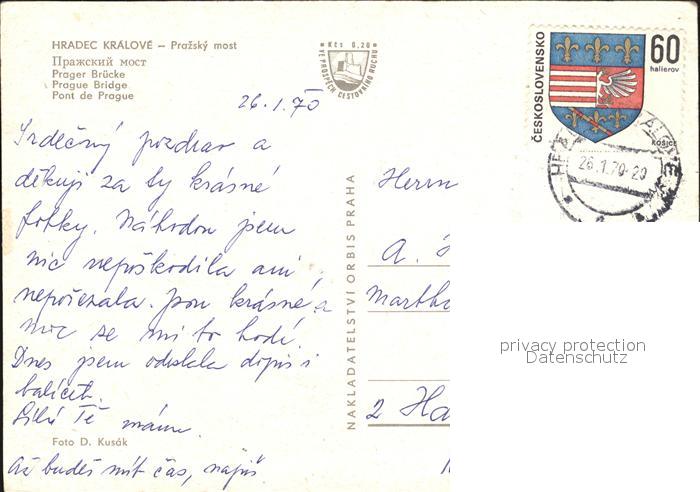 HRADEC KRÁLOVÉ – Pražský most
Пражский мост
Prager Brücke
Prague Bridge
Pont de Prague
Kčs 0,20
VE PROSPĚCH CESTOVNÍHO RUCHU
ČESKOSLOVENSKO
60
halierov
KOŠICE
26.1.70-20
26.1.70
Srdečný pozdrav a
děkuji za ty krásné
fotky. Náhodou jsem
nic nepoškodila ani
nepořezala. Jsou krásné a
moc se mi to hodí.
Dnes jsem odeslala dopis i
balíček.
Líbá Tě máma.
Foto D. Kusák
Až budeš mít čas, napiš.
NAKLADATELSTVÍ ORBIS PRAHA
Herrn
A.
Martha
2 Ha
privacy protection
Datenschutz